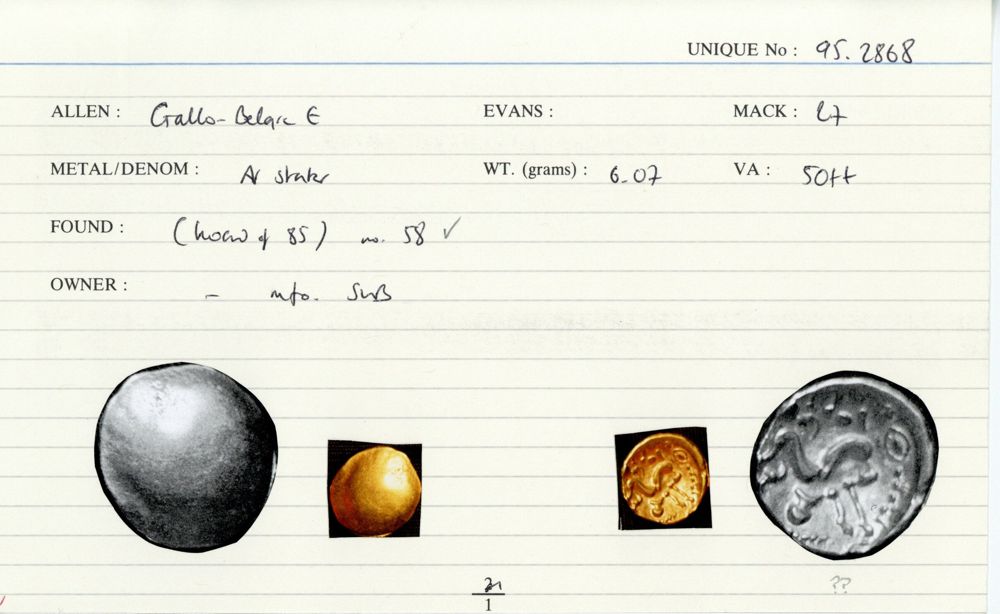 UNIQUE No : 95.2868
ALLEN : Gallo-Belgic E EVANS : MACK : 27
METAL/DENOM : AV stater WT. (grams) : 6.07 VA : 50ff
FOUND : (hoard of 85) no. 58 ✓
OWNER : - info. SWB
??
1